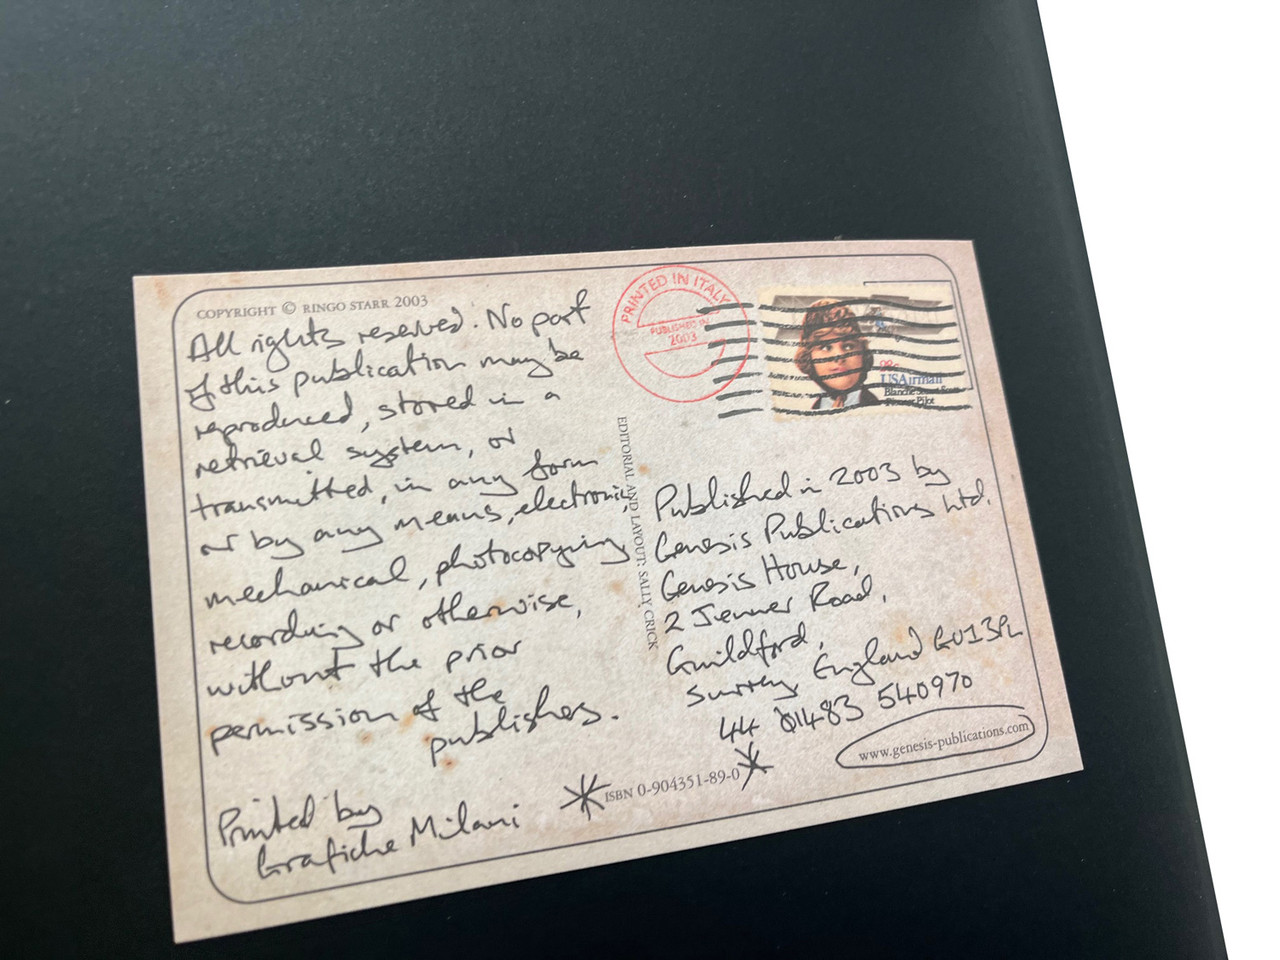 COPYRIGHT © RINGO STARR 2003
All rights reserved. No part
of this publication may be
reproduced, stored in a
retrieval system, or
transmitted, in any form
or by any means, electronic,
mechanical, photocopying
recording or otherwise,
without the prior
permission of the
publishers.
Printed by
Grafiche Milani
EDITORIAL AND LAYOUT: SALLY CRICK
PRINTED IN ITALY
PUBLISHED IN
2003
USAirmail
Pilot
Published in 2003 by
Genesis Publications Ltd.
Genesis House,
2 Jenner Road,
Guildford,
Surrey England GU13PL
44 01483 540970
www.genesis-publications.com
ISBN 0-904351-89-0